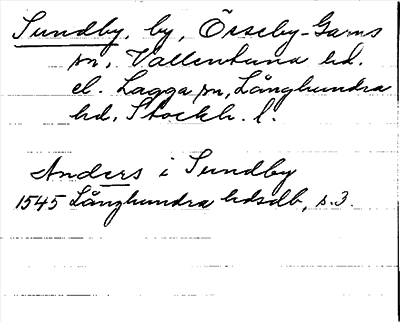 Sundby, by, Össeby-Garns
sn, Vallentuna hd.
el. Lagga sn, Långhundra
hd, Stockh. l.
Anders i Sundby
1545 Långhundra hdsdb, s. 3.